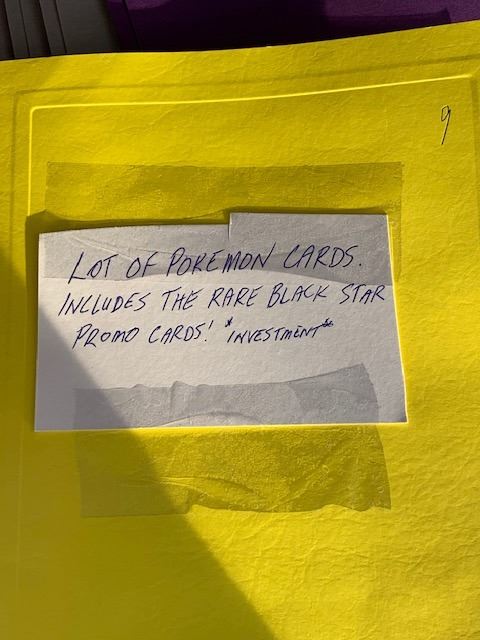 9
LOT OF POKEMON CARDS.
INCLUDES THE RARE BLACK STAR
PROMO CARDS! *INVESTMENT*